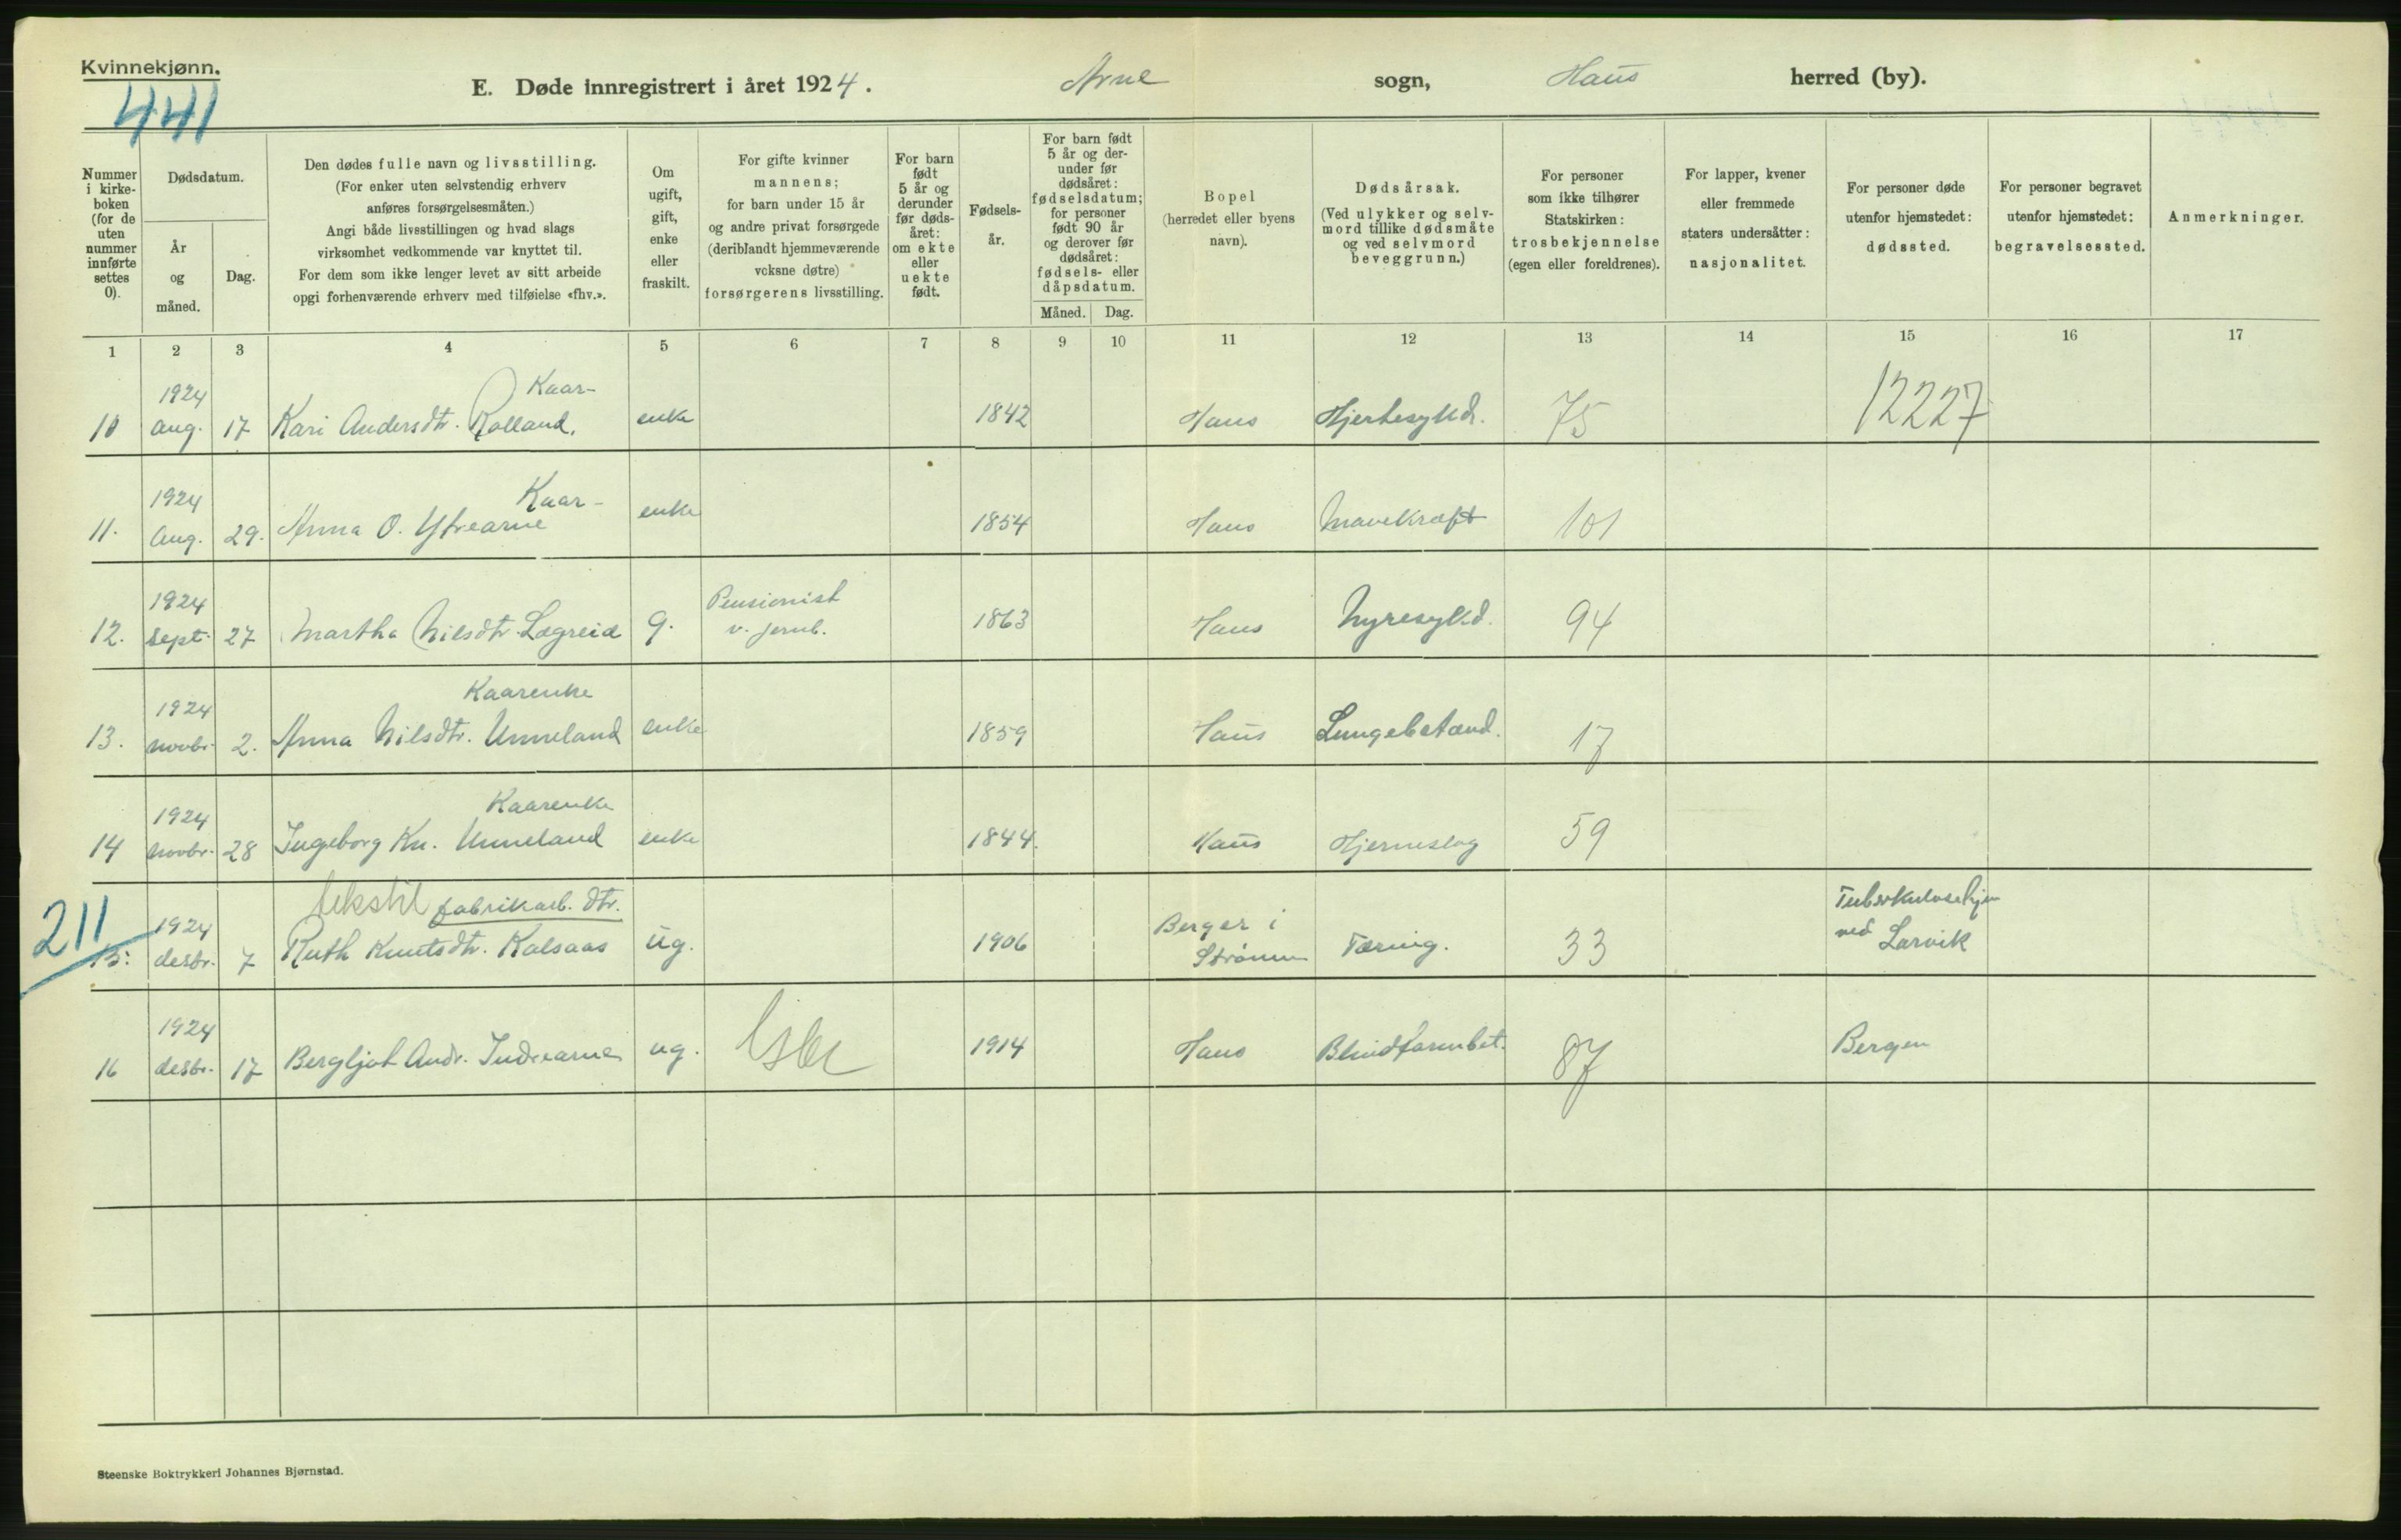 Kvinnekjønn.
441
E. Døde innregistrert i året 1924. Arne sogn, Haus herred (by).
Nummer i kirke-boken (for de uten nummer innførte settes 0).
Dødsdatum.
År og måned.
Dag.
Den dødes fulle navn og livsstilling.
(For enker uten selvstendig erhverv
anføres forsørgelsesmåten.)
Angi både livsstillingen og hvad slags
virksomhet vedkommende var knyttet til.
For dem som ikke lenger levet av sitt arbeide
opgi forhenværende erhverv med tilføielse «fhv.».
Om ugift, gift, enke eller fraskilt.
For gifte kvinner
mannens;
for barn under 15 år
og andre privat forsørgede
(deriblandt hjemmeværende
voksne døtre)
forsørgerens livsstilling.
For barn født 5 år og derunder før døds-året: om ekte eller uekte født.
Fødsels-år.
For barn født 5 år og der-under før dødsåret: fødselsdatum; for personer født 90 år og derover før dødsåret: fødsels- eller dåpsdatum.
Måned. Dag.
Bopel
(herredet eller byens navn).
Dødsårsak.
(Ved ulykker og selv-mord tillike dødsmåte og ved selvmord beveggrunn.)
For personer som ikke tilhører Statskirken: trosbekjennelse (egen eller foreldrenes).
For lapper, kvener eller fremmede staters undersåtter: nasjonalitet.
For personer døde utenfor hjemstedet: dødssted.
For personer begravet utenfor hjemstedet: begravelsessted.
Anmerkninger.
1 2 3 4 5 6 7 8 9 10 11 12 13 14 15 16 17
1924 Kaar-
10 aug. 17 Kari Andersdtr. Rolland. enke 1842 Haus Hjertesykd. 75 12227
1924 Kaar-
11. Aug. 29. Anna O. Ytrearne enke 1854 Haus Mavekræft 101
1924 Pensionist
12. Sept. 27 Martha Nilsdtr. Lægreid g. v. jernb. 1863 Haus Nyresykd. 94
1924 Kaarenke
13. novbr. 2. Anna Nilsdtr. Unneland enke 1859 Haus Lungebetænd. 17
1924 Kaarenke
14 novbr. 28 Ingeborg Kn. Unneland enke 1844. Haus Hjerneslag 59
211 1924 tekstil fabrikarb. dtr. Berger i Tuberkulosehjem
15. desbr. 7 Ruth Knutsdtr. Kalsaas ug. 1906 Strømm Tæring. 33 ved Larvik
1924
16 desbr. 17 Bergljot Andr. Indrearne ug. 1914 Haus Blindtarmbet. 87 Bergen
Steenske Boktrykkeri Johannes Bjørnstad.